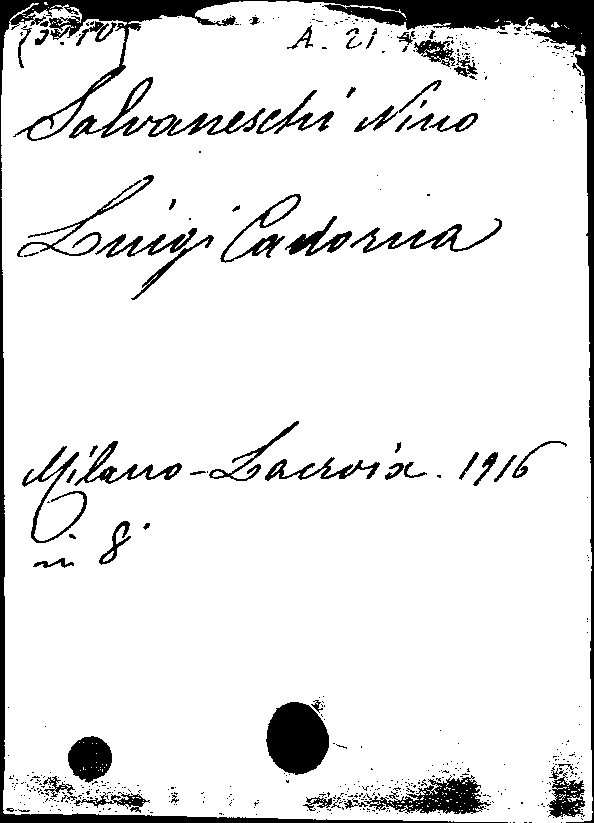 A. 21.
Salvaneschi Nino
Luigi Cadorna
Milano - Lacroix. 1916
in 8°